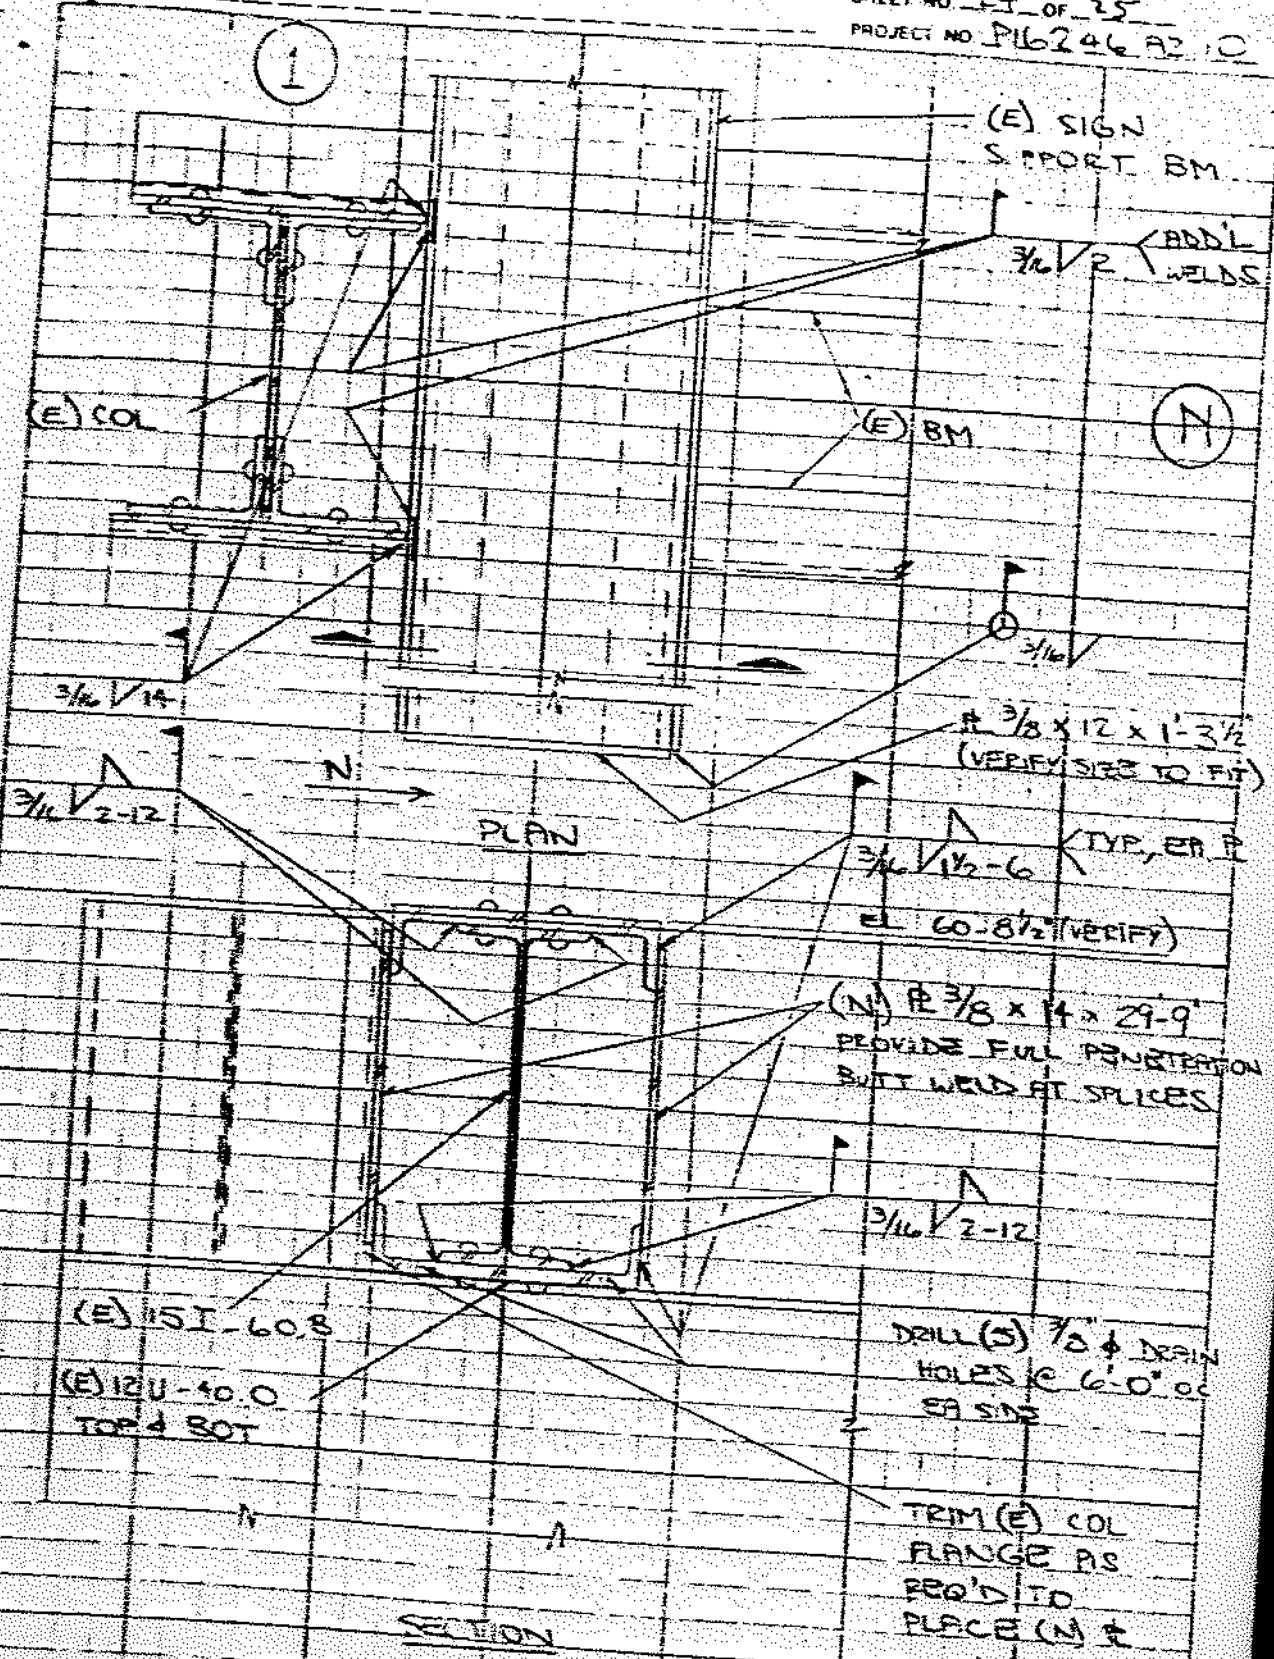 OF 25
PROJECT NO P16246
1
(E) SIGN
SUPPORT BM
3/16 2
ADD'L
WELDS
(E) COL
(E) BM
N
3/16 14
3/16
PL 3/8 x 12 x 1'-3½"
(VERIFY SIZE TO FIT)
N
3/16 2-12
PLAN
3/16 1½-6
TYP., EA PL
EL 60-8½" (VERIFY)
(N) PL 3/8 x 14 x 29-9"
PROVIDE FULL PENETRATION
BUTT WELD AT SPLICES
3/16 2-12
(E) 15I-60.8
(E) 12U-40.0
TOP & BOT
DRILL (5) ⌀ DRAIN
HOLES @ 6'-0" OC
EA SIDE
TRIM (E) COL
FLANGE AS
REQ'D TO
PLACE (N) PL
SECTION